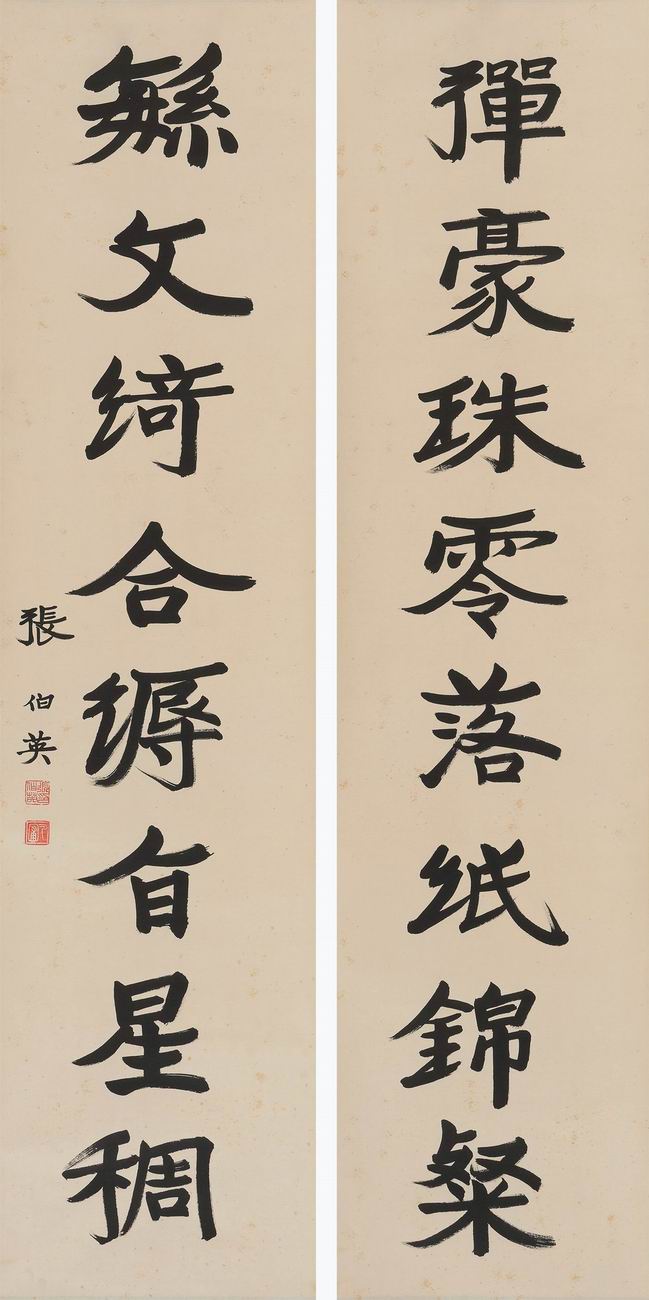 彈豪珠零落紙錦粲
緐文綺合縟旨星稠
張伯英